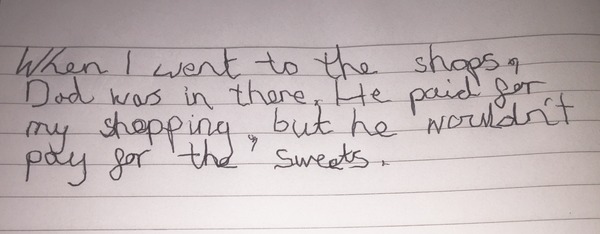 When I went to the shops,
Dad was in there. He paid for
my shopping, but he wouldn't
pay for the sweets.